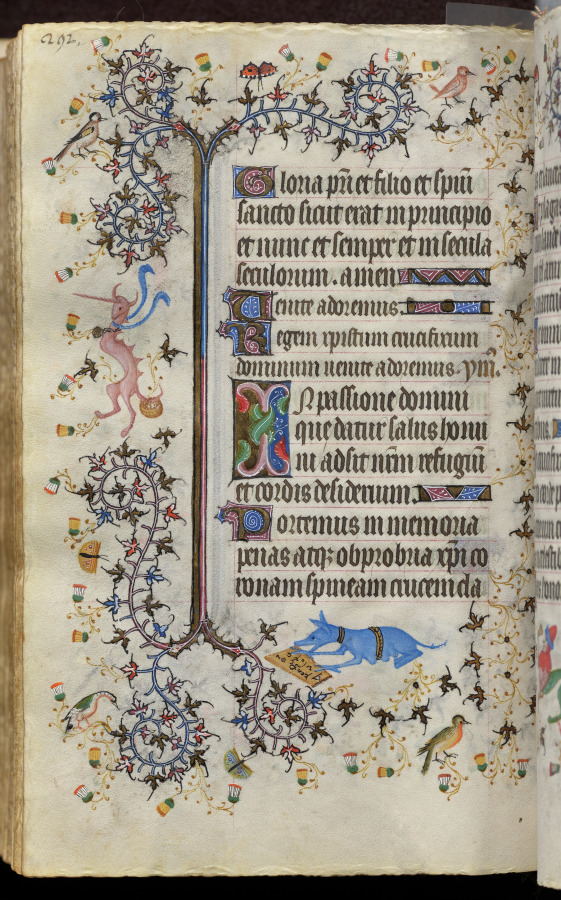 292.
Gloria pr̄i et filio et spiri̅
sancto sicut erat in principio
et nunc et semper et in secula
seculorum. amen
Uenite adoremus.
Regem xpristum crucifixum
dominum uenite adoremus. ym̄.
IN passione domini
que datur salus homi
ni adsit nr̄m refugiū
et cordis desiderium.
Portemus in memoria
penas atq; obprobria xp̄i co
ronam spineam crucem cla